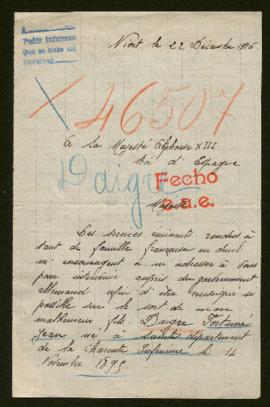 Pedir informes
Niort, le 22 Décembre 1916
X 46507
A Sa Majesté Alphonse XIII
Roi d'Espagne
Daigre
Fecho
p.a.e.
Majesté
Les services éminent rendus à
tant de famille française en deuil
m'encouragent à m'adresser à Vous
pour intervenir auprès du gouvernement
allemand afin d'être renseigné si
possible sur le sort de mon
malheureux fils. Daigre Fortuné
Jean né à Saintes département
de la Charente Inférieure le 14
Novembre 1895